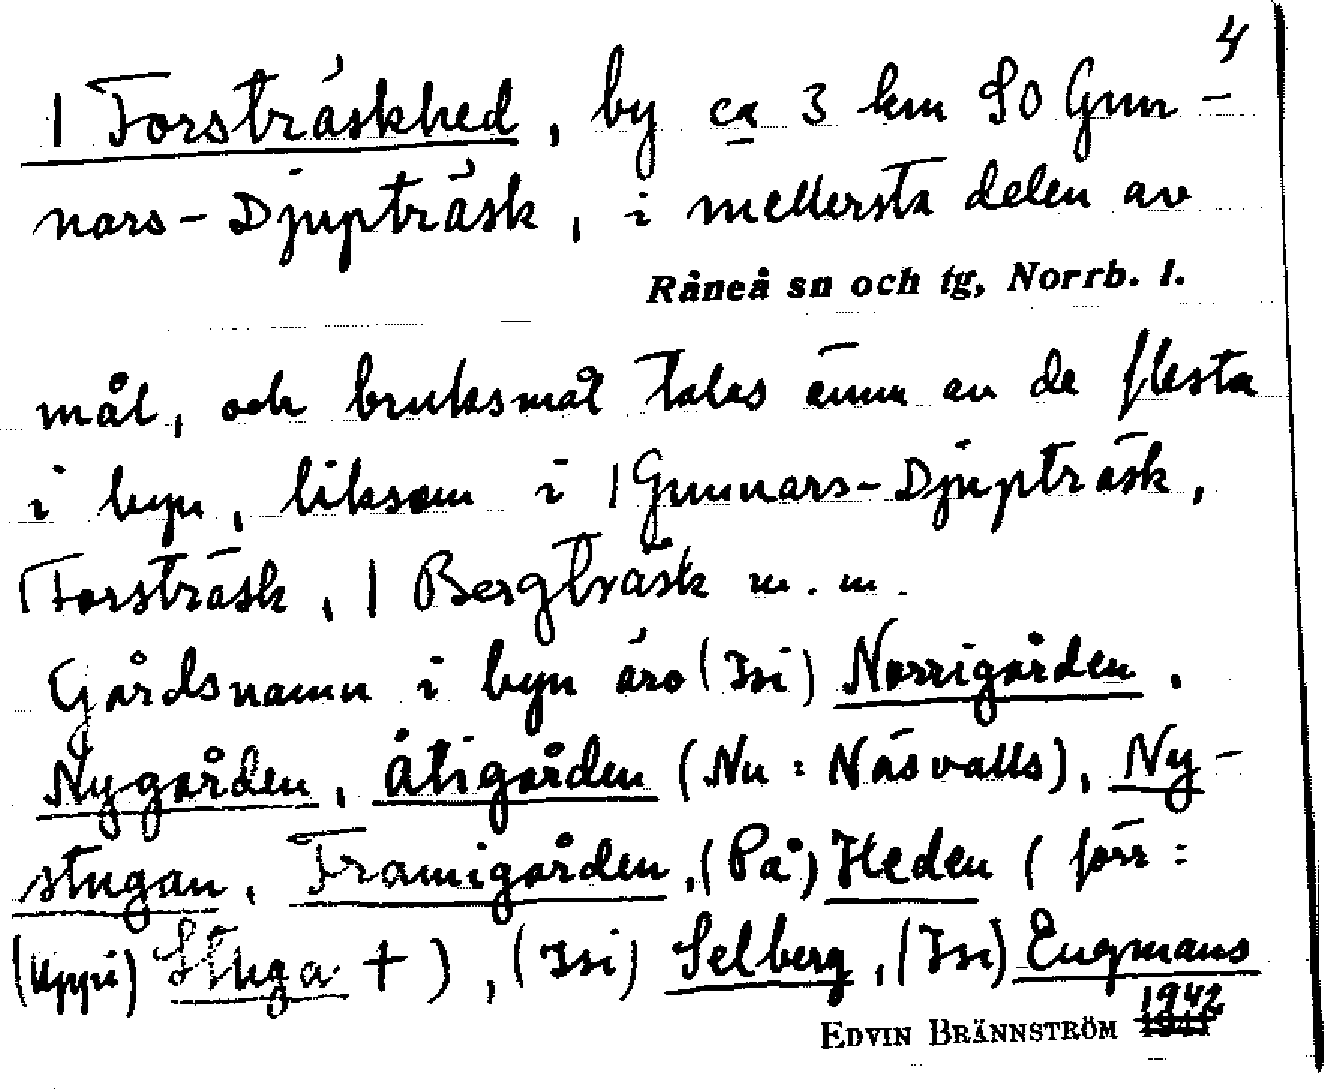 4
| Forsträskhed, by ca 3 km SO Gun-
nars-Djupträsk, i mellersta delen av
Råneå sn och tg, Norrb. l.
mål, och bruksmål talas ännu av de flesta
i byn, liksom i | Gunnars-Djupträsk,
| Forsträsk, | Bergträsk m. m.
Gårdsnamn i byn äro (Isi) Norrigården,
Nygården, Åtigården (Nu: Näsvalls), Ny-
stugan, Framigården, (På) Heden (förr:
(Uppi) Stuga +), (Isi) Selberg, (Isi) Engmans
EDVIN BRÄNNSTRÖM 1942